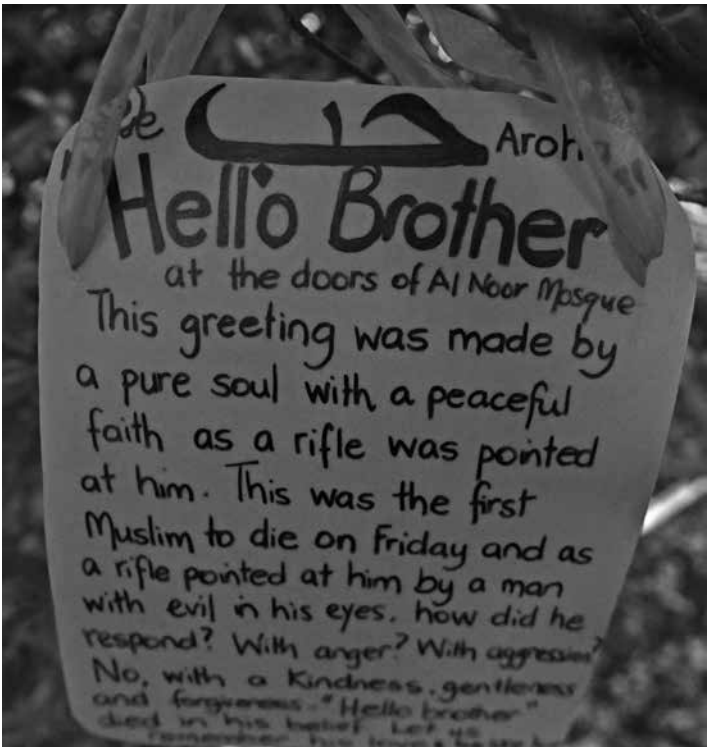 حب Aroh
Hello Brother
at the doors of Al Noor Mosque
This greeting was made by
a pure soul with a peaceful
faith as a rifle was pointed
at him. This was the first
Muslim to die on Friday and as
a rifle pointed at him by a man
with evil in his eyes. how did he
respond? With anger? With aggression?
No, with a Kindness, gentleness
and forgiveness. "Hello brother"
died in his belief. Let us
remember his